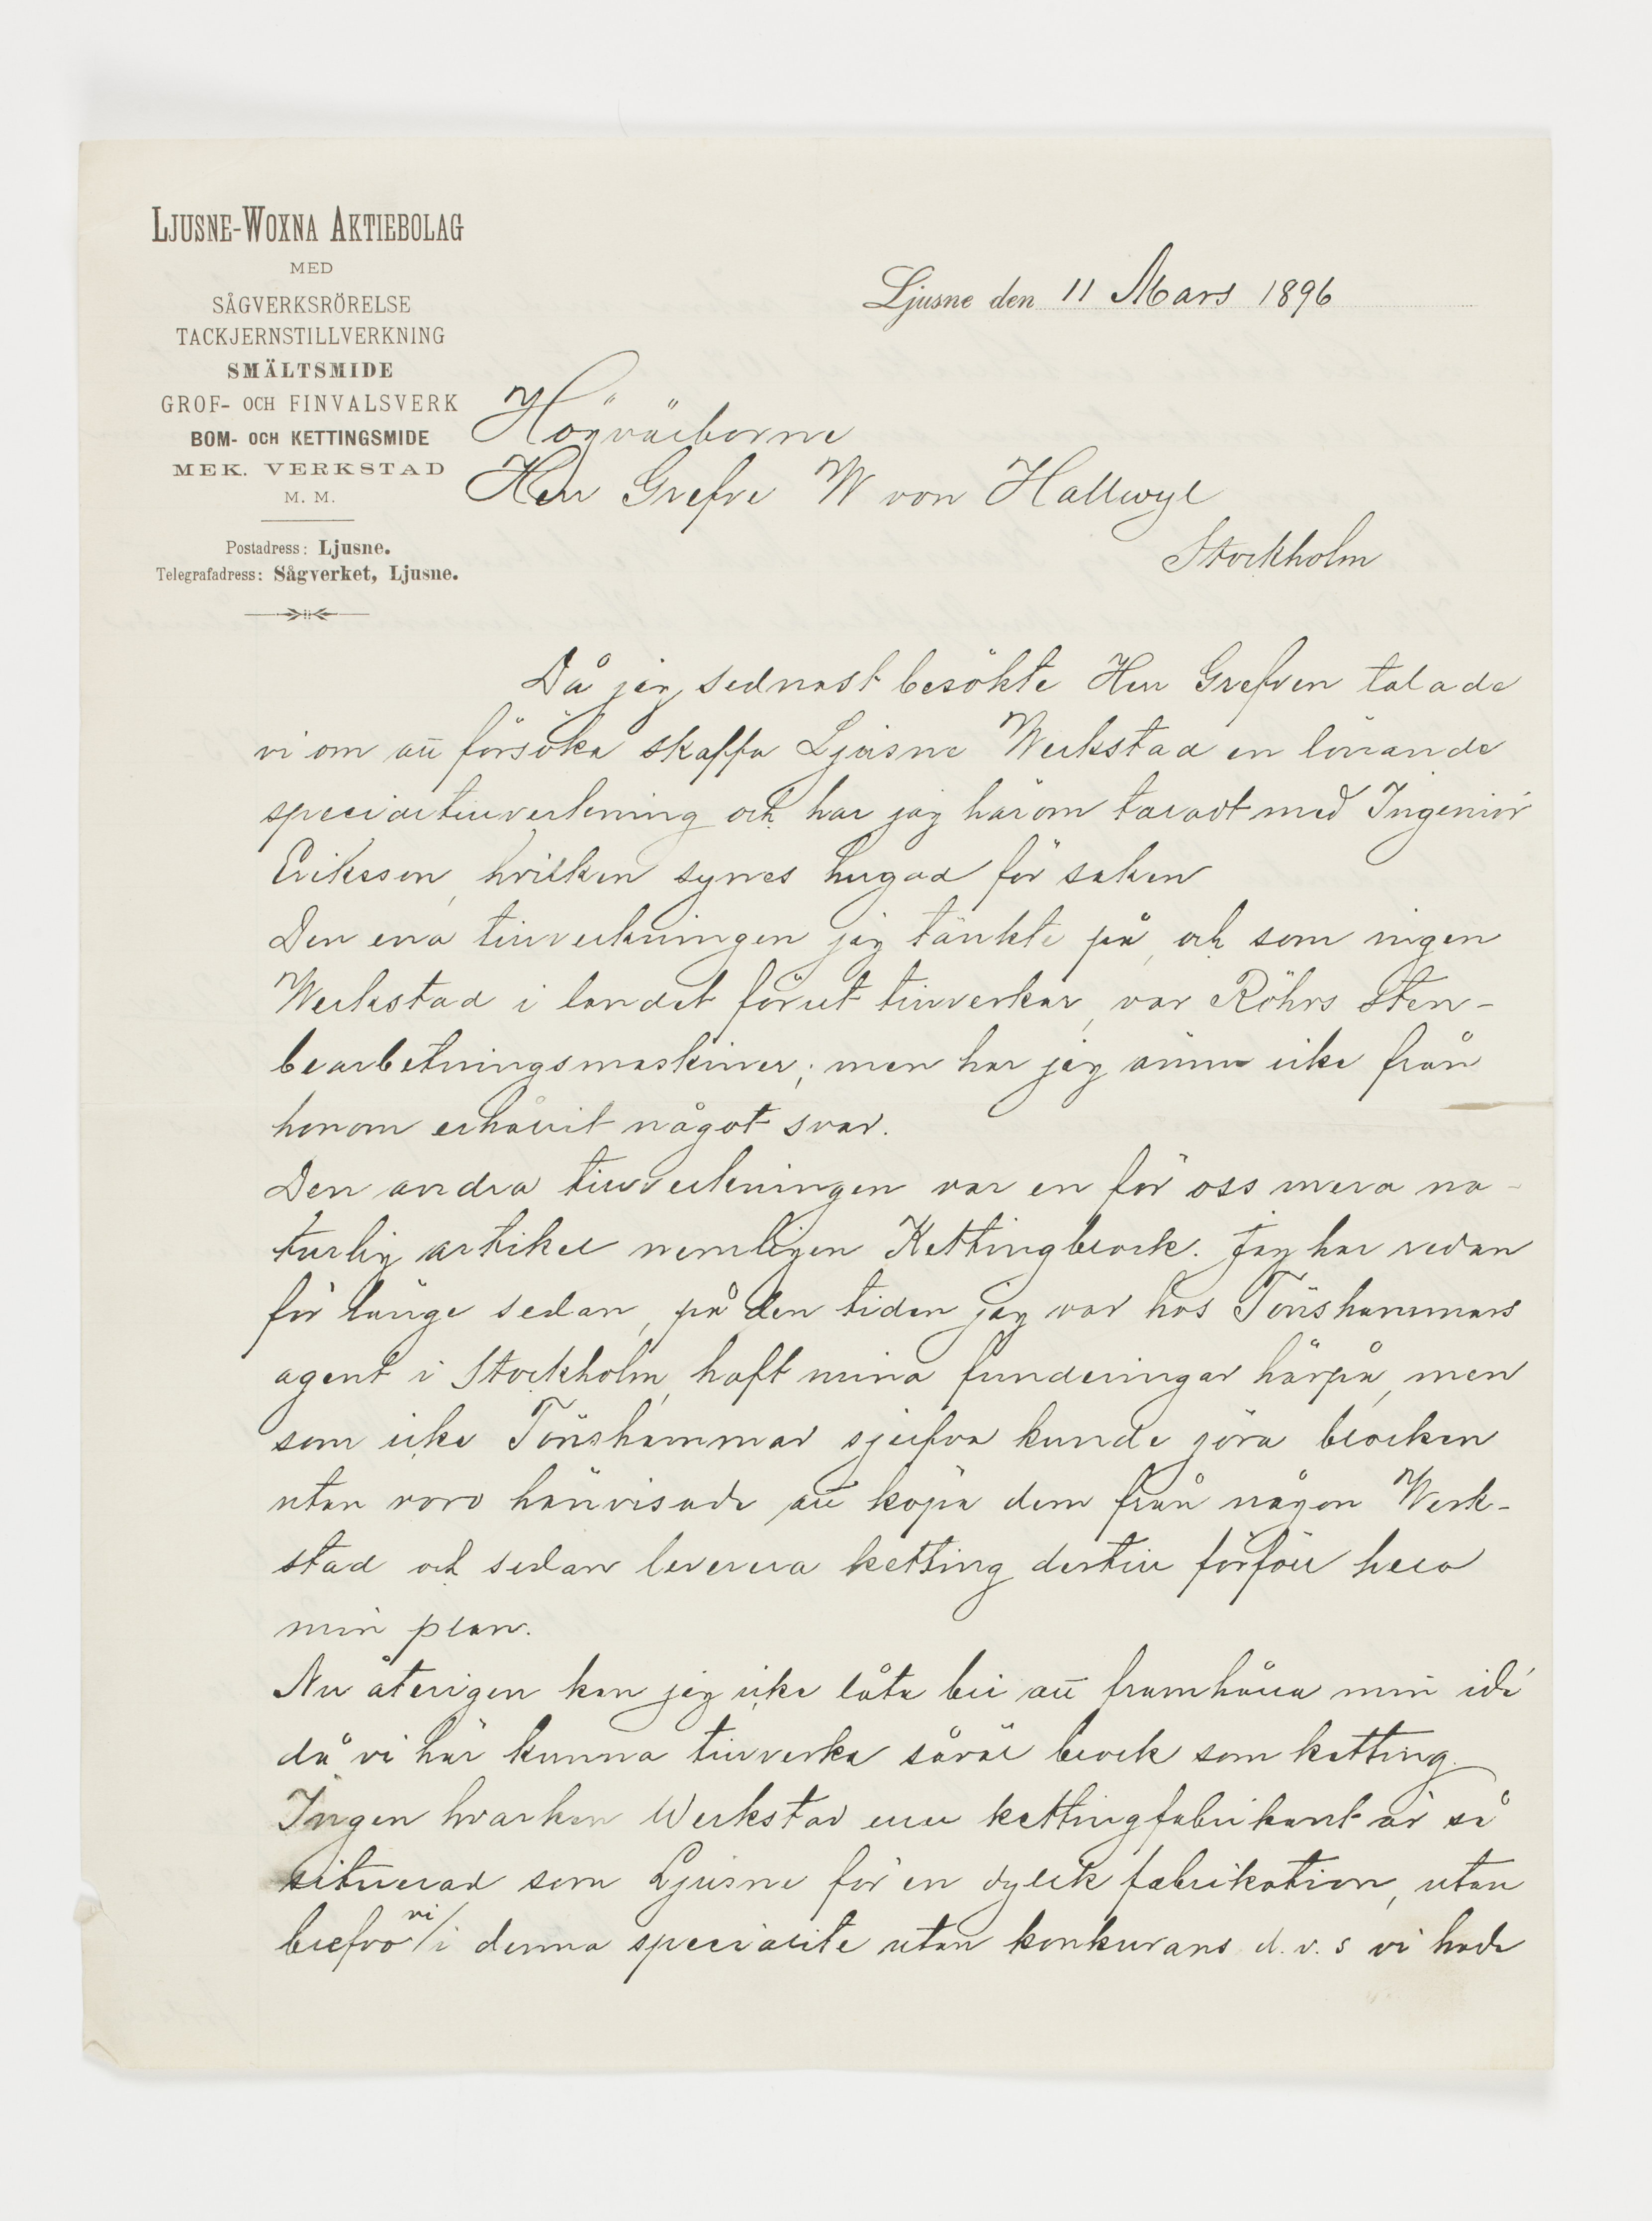 LJUSNE-WOXNA AKTIEBOLAG
MED
SÅGVERKSRÖRELSE
TACKJERNSTILLVERKNING
SMÄLTSMIDE
GROF- OCH FINVALSVERK
BOM- OCH KETTINGSMIDE
MEK. VERKSTAD
M. M.
Postadress: Ljusne.
Telegrafadress: Sågverket, Ljusne.
Ljusne den 11 Mars 1896
Högvälborne
Herr Grefve W von Hallwyl
Stockholm
Då jag sednast besökte Herr Grefven talade
vi om att försöka skaffa Ljusne Werkstad en lönande
specialtillverkning och har jag härom taladt med Ingeniör
Eriksson, hvilken synes hugad för saken
Den ena tillverkningen jag tänkte på, och som ingen
Werkstad i landet förut tillverkar, var Röhrs Sten-
bearbetningsmaskiner; men har jag ännu icke från
honom erhållit något svar.
Den andra tillverkningen var en för oss mera na-
turlig artikel nemligen Kettingblock. Jag har redan
för länge sedan, på den tiden jag var hos Tönshammars
agent i Stockholm, haft mina funderingar härpå, men
som icke Tönshammar sjelfva kunde göra blocken
utan voro hänvisade att köpa dem från någon Werk-
stad och sedan leverera ketting dertill förföll hela
min plan.
Nu återigen kan jag icke låta bli att framhålla min idé
då vi här kunna tillverka såväl block som ketting.
Ingen hvarken Werkstad eller kettingfabrikant är så
situerad som Ljusne för en dylik fabrikation, utan
blefvo vi/i denna specialité utan konkurans d.v.s vi hade